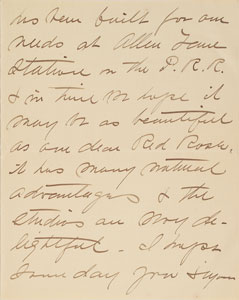 has been built for our
needs at Allen Lane
Station on the P. R. R.
& in time we hope it
may be as beautiful
as our dear Red Rose.
it has many natural
advantages & the
studios are very de-
lightful. I hope
some day you &